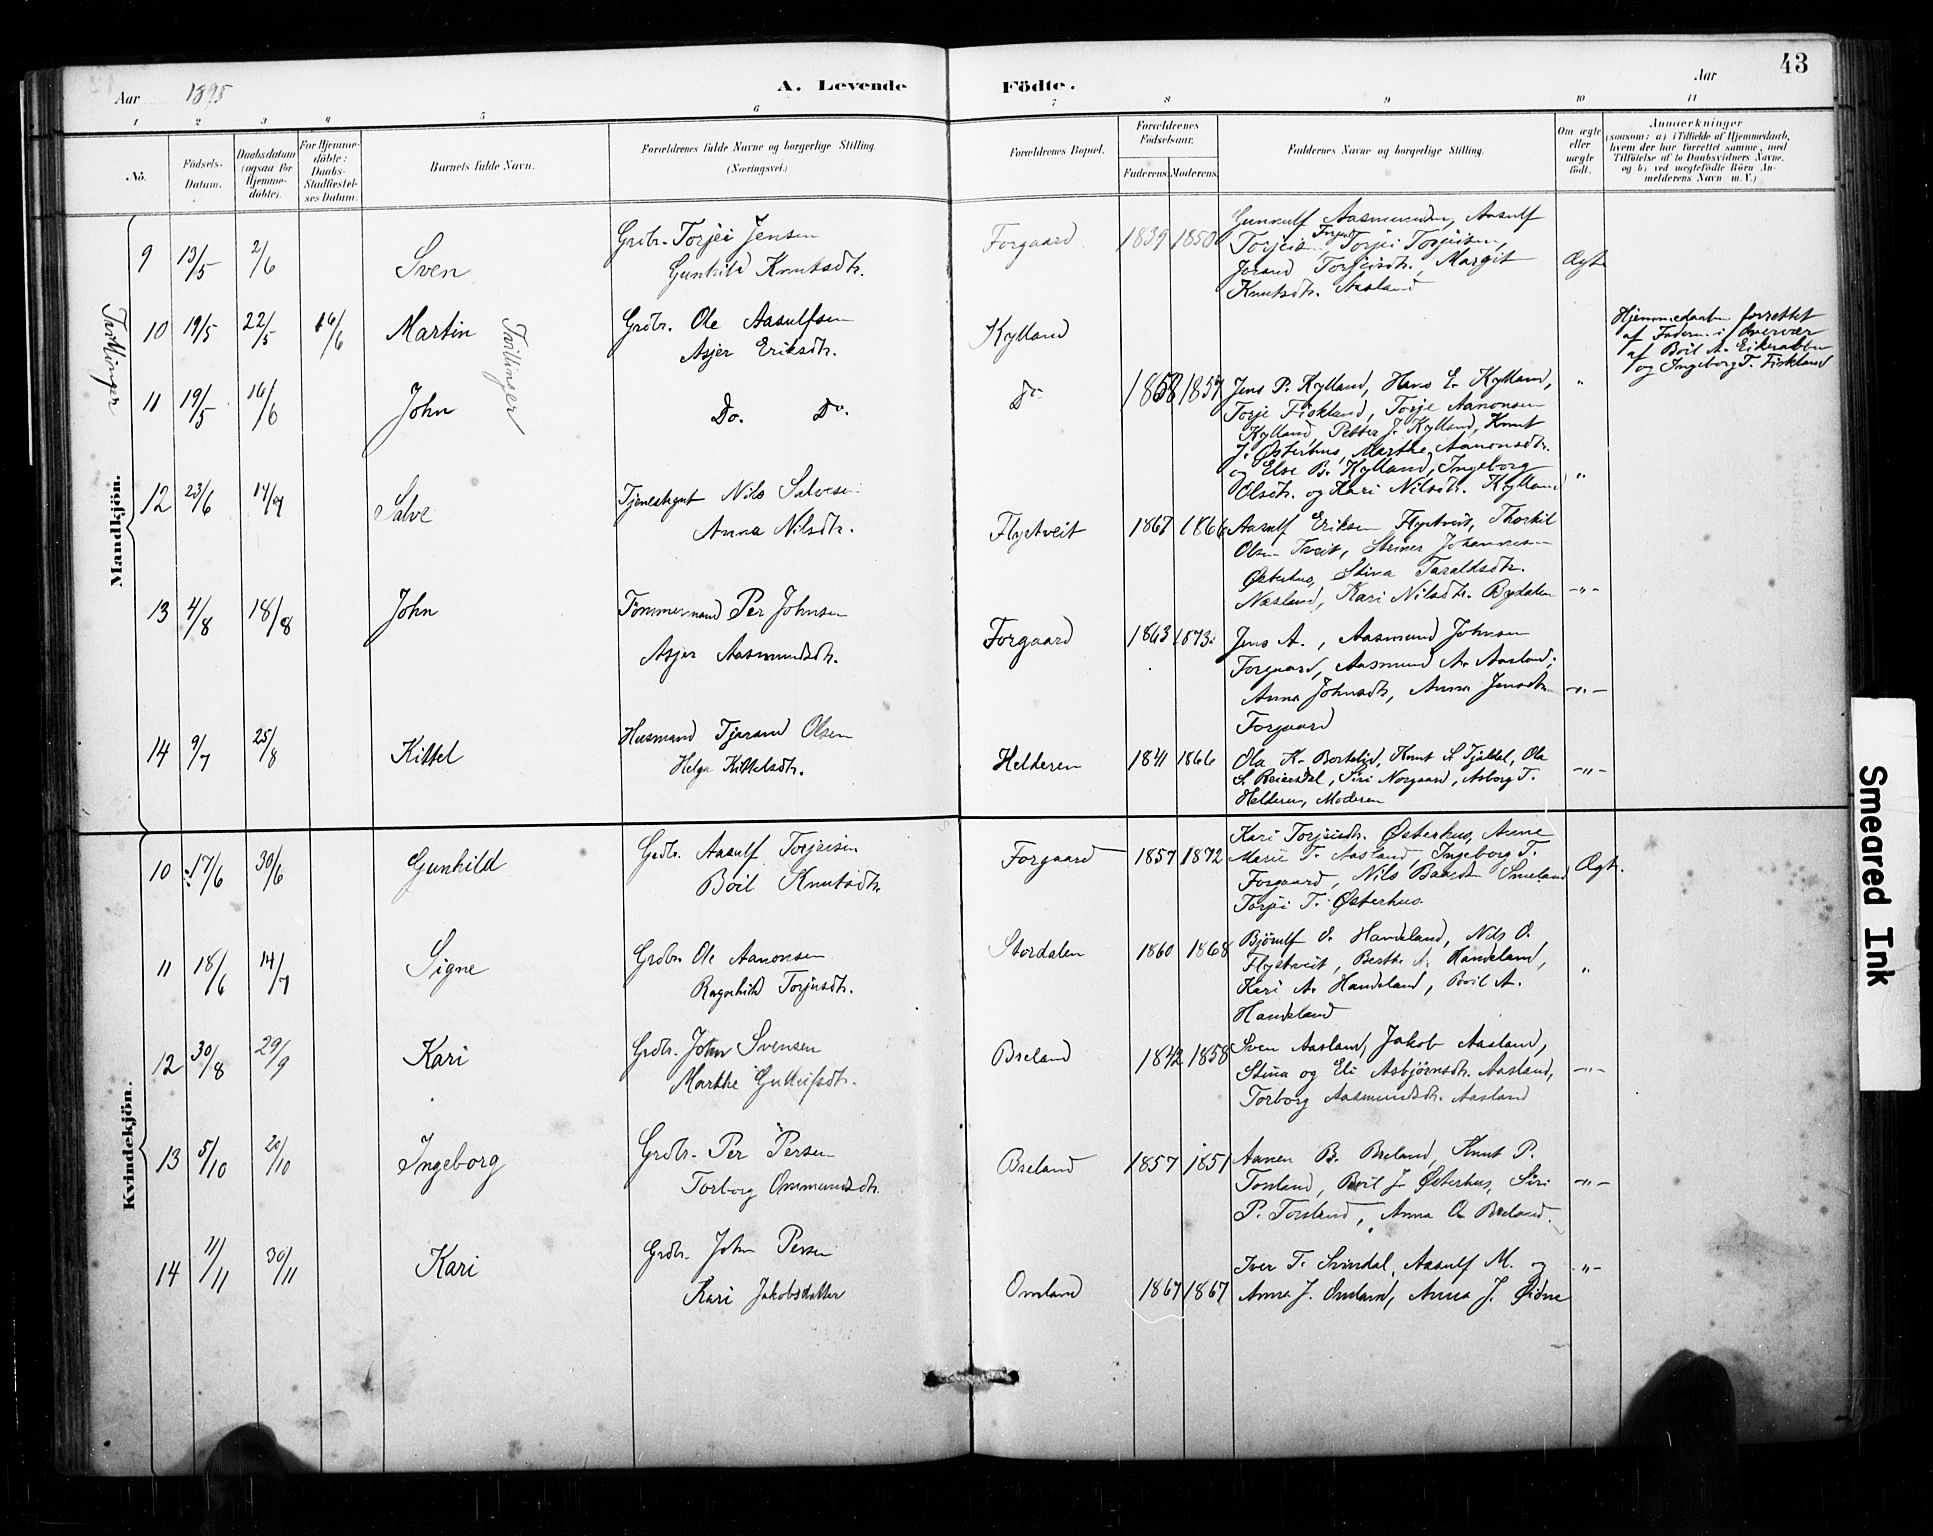 43
Aar 1895
A. Levende Födte.
Aar
1 2 3 4 5 6 7 8 9 10 11
No.
Födsels-Datum.
Daabsdatum (ogsaa for Hjemmedöbte).
For Hjemmedöbte: Daabs-Stadfæstelses Datum.
Barnets fulde Navn.
Forældrenes fulde Navne og borgerlige Stilling.
(Næringsvei.)
Forældrenes Bopæl.
Forældrenes Födselsaar.
Faderens Moderens
Faddernes Navne og borgerlige Stilling.
Om ægte eller uægte födt.
Anmærkninger
(saasom: a) i Tilfælde af Hjemmedaab,
hvem der har forrettet samme, med
Tilföielse af to Daabsvidners Navne,
og b) ved uægtefödte Börn An-
melderens Navn m. V.)
Mandkjön.
9 13/5 2/6 Sven
Grdbr. Torjei Jensen
Gunhild Knutsdtr.
Forgaard 1839 1850
Gunnulf Aasmundsen, Aasulf
Torjeisen Torjei Torjeisen,
Jorand Torjeisdtr., Margit
Knutsdtr. Aasland
Ægte
Tvillinger
10 19/5 22/5 16/6 Martin
Tvillinger
Grdbr. Ole Aasulfsen
Asjer Eriksdtr.
Kylland
Hjemmedaaben forrettet
af Faderen i Overvær
af Boil A. Eikerabben
og Ingeborg T. Fiskland
11 19/5 16/6 John
Do. Do.
Do 1858 1857
Jens P. Kylland, Hans E. Kylland,
Torje Fiskland, Torje Aanonsen
Kylland, Petter J. Kylland, Knut
J. Østerhus, Marthe Aanonsdtr.
og Else B. Kylland, Ingeborg
Olsdtr. og Kari Nilsdtr. Kylland
"
12 23/6 14/7 Salve
Tjenestegut Nils Salvesen
Anna Nilsdtr.
Flystveit 1867 1866
Aasulf Eriksen Flystveit, Thorkil
Olsen Tveit, Steiner Johannesen
Østerhus, Stina Taraldsdtr.
Næsland, Kari Nilsdtr. Bydalen
"
13 4/8 18/8 John
Tømmermand Per Johnsen
Asjer Aasmundsdtr.
Forgaard 1863 1873
Jens A., Aasmund Johnsen
Forgaard, Aasmund A. Aasland,
Anna Johnsdtr, Anna Jensdtr
Forgaard
-"-
14 9/7 25/8 Kittel
Husmand Tjøran Olsen
Helga Kittelsdtr.
Helderen 1841 1866
Ola K. Bortelid, Knut S. Tjaldal, Ola
S. Reiersdal, Siri Norgaard, Asborg T.
Helderen, Moderen
-"-
Kvindekjön.
10 17/6 30/6 Gunhild
Grdbr. Aasulf Torjeisen
Boil Knutsdtr.
Forgaard 1857 1872
Kari Torjeisdtr. Østerhus, Anne
Marie T. Aasland, Ingeborg T.
Forgaard, Nils Smeland
Torjei T. Østerhus
Ægte.
11 18/6 14/7 Signe
Grdbr. Ole Aanonsen
Ragnhild Torjusdtr.
Stordalen 1860 1868
Bjørulf O. Handeland, Nils O.
Flystveit, Berthe A. Handeland,
Kari A. Handeland, Boil A.
Handeland
"
12 30/8 29/9 Kari
Grdbr. John Svensen
Marthe Gunulfsdtr.
Breland 1842 1858
Sven Aasland, Jakob Aasland,
Stina og Eli Asbjørnsdtr. Aasland,
Torborg Aasmundsdtr. Aasland
-"-
13 5/10 20/10 Ingeborg
Grdbr. Per Persen
Torborg Ommundsdtr.
Breland 1857 1851
Aanen B. Breland, Knut P.
Fosland, Boil J. Østerhus, Siri
P. Fosland, Anna O. Breland.
-"-
14 11/11 30/11 Kari
Grdbr. John Persen
Kari Jakobsdatter
Omland 1867 1867
Iver T. Svindal, Aasulf M. og
Anna J. Omland, Anna J. Øidne
-"-
Smeared Ink